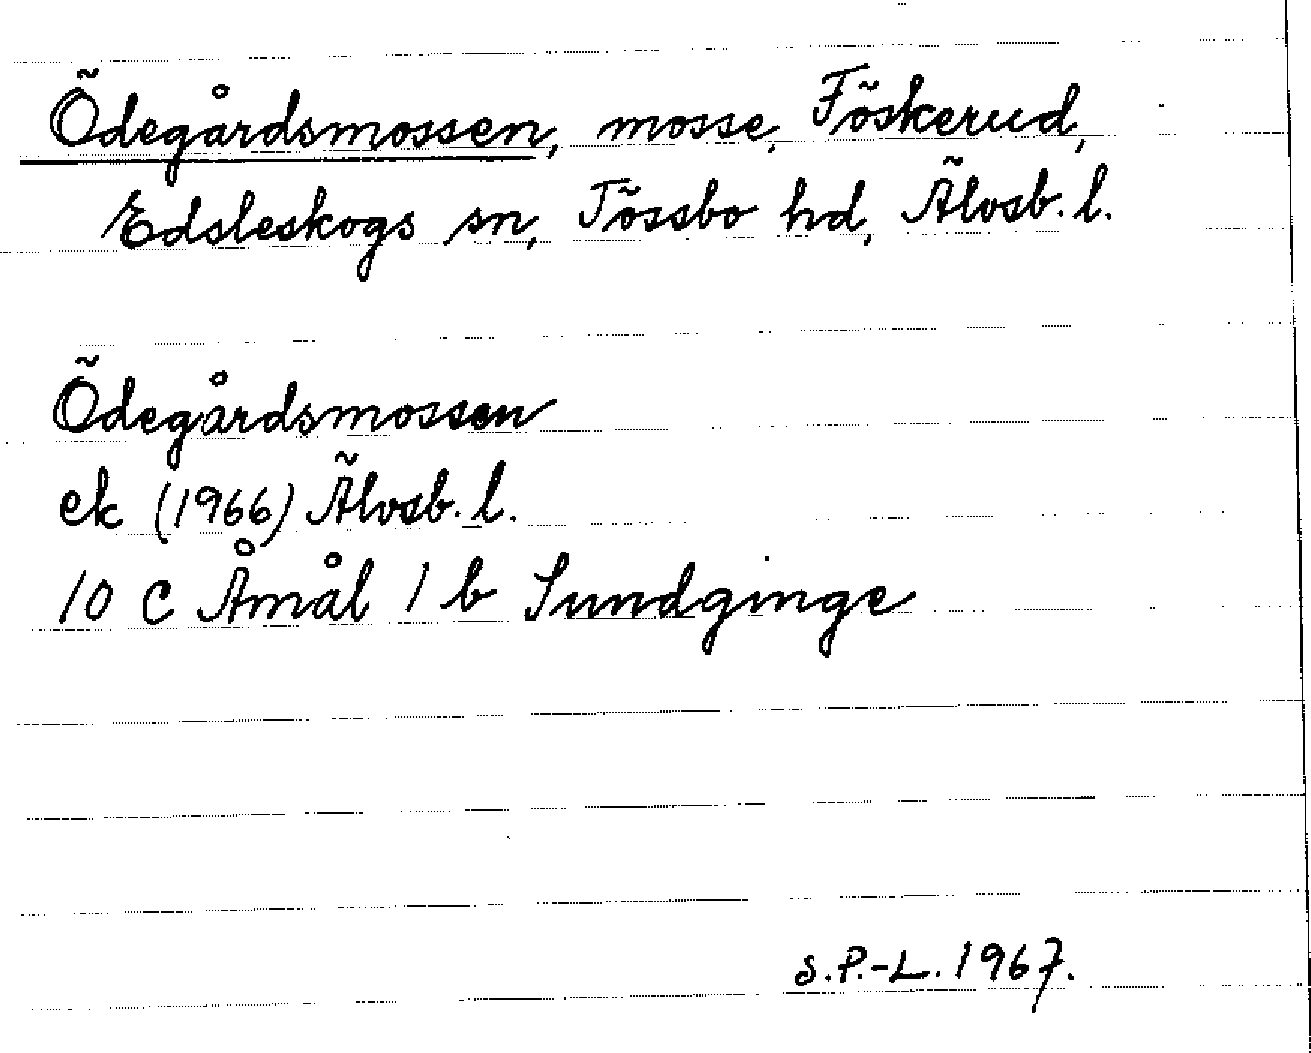 Ödegårdsmossen, mosse, Föskerud,
Edsleskogs sn, Tössbo hd, Älvsb. l.
Ödegårdsmossen
ek (1966) Älvsb. l.
10 C Åmål 1 b Sundginge
S.P.-L. 1967.